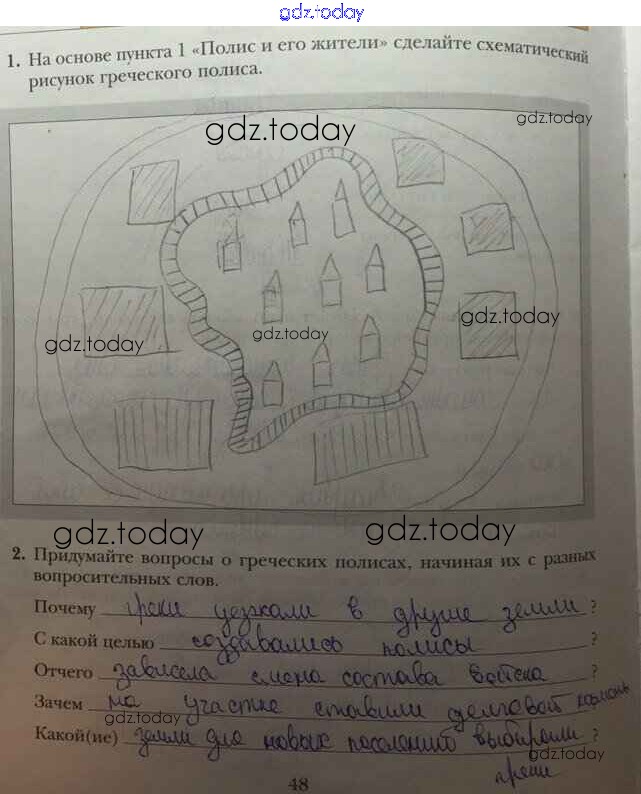 gdz.today
1. На основе пункта 1 «Полис и его жители» сделайте схематический
рисунок греческого полиса.
gdz.today
gdz.today
gdz.today
gdz.today
gdz.today
gdz.today
gdz.today
2. Придумайте вопросы о греческих полисах, начиная их с разных
вопросительных слов.
Почему греки уезжали в другие земли ?
С какой целью создавались полисы ?
Отчего зависела смена состава войска ?
Зачем на участке ставили делговой камень
gdz.today
Какой(ие) земли для новых поселений выбирали ?
gdz.today
греки
48